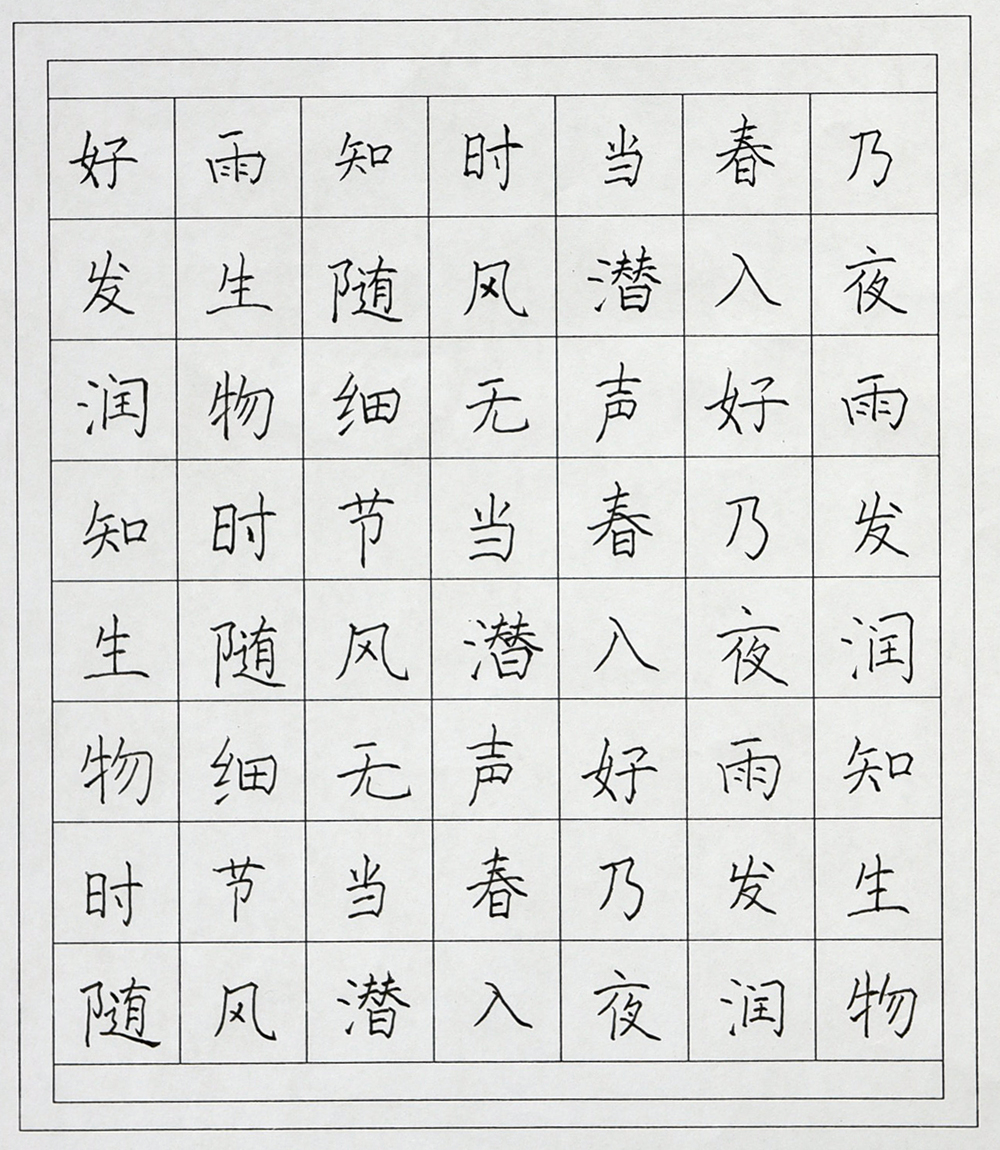 好雨知时当春乃
发生随风潜入夜
润物细无声好雨
知时节当春乃发
生随风潜入夜润
物细无声好雨知
时节当春乃发生
随风潜入夜润物